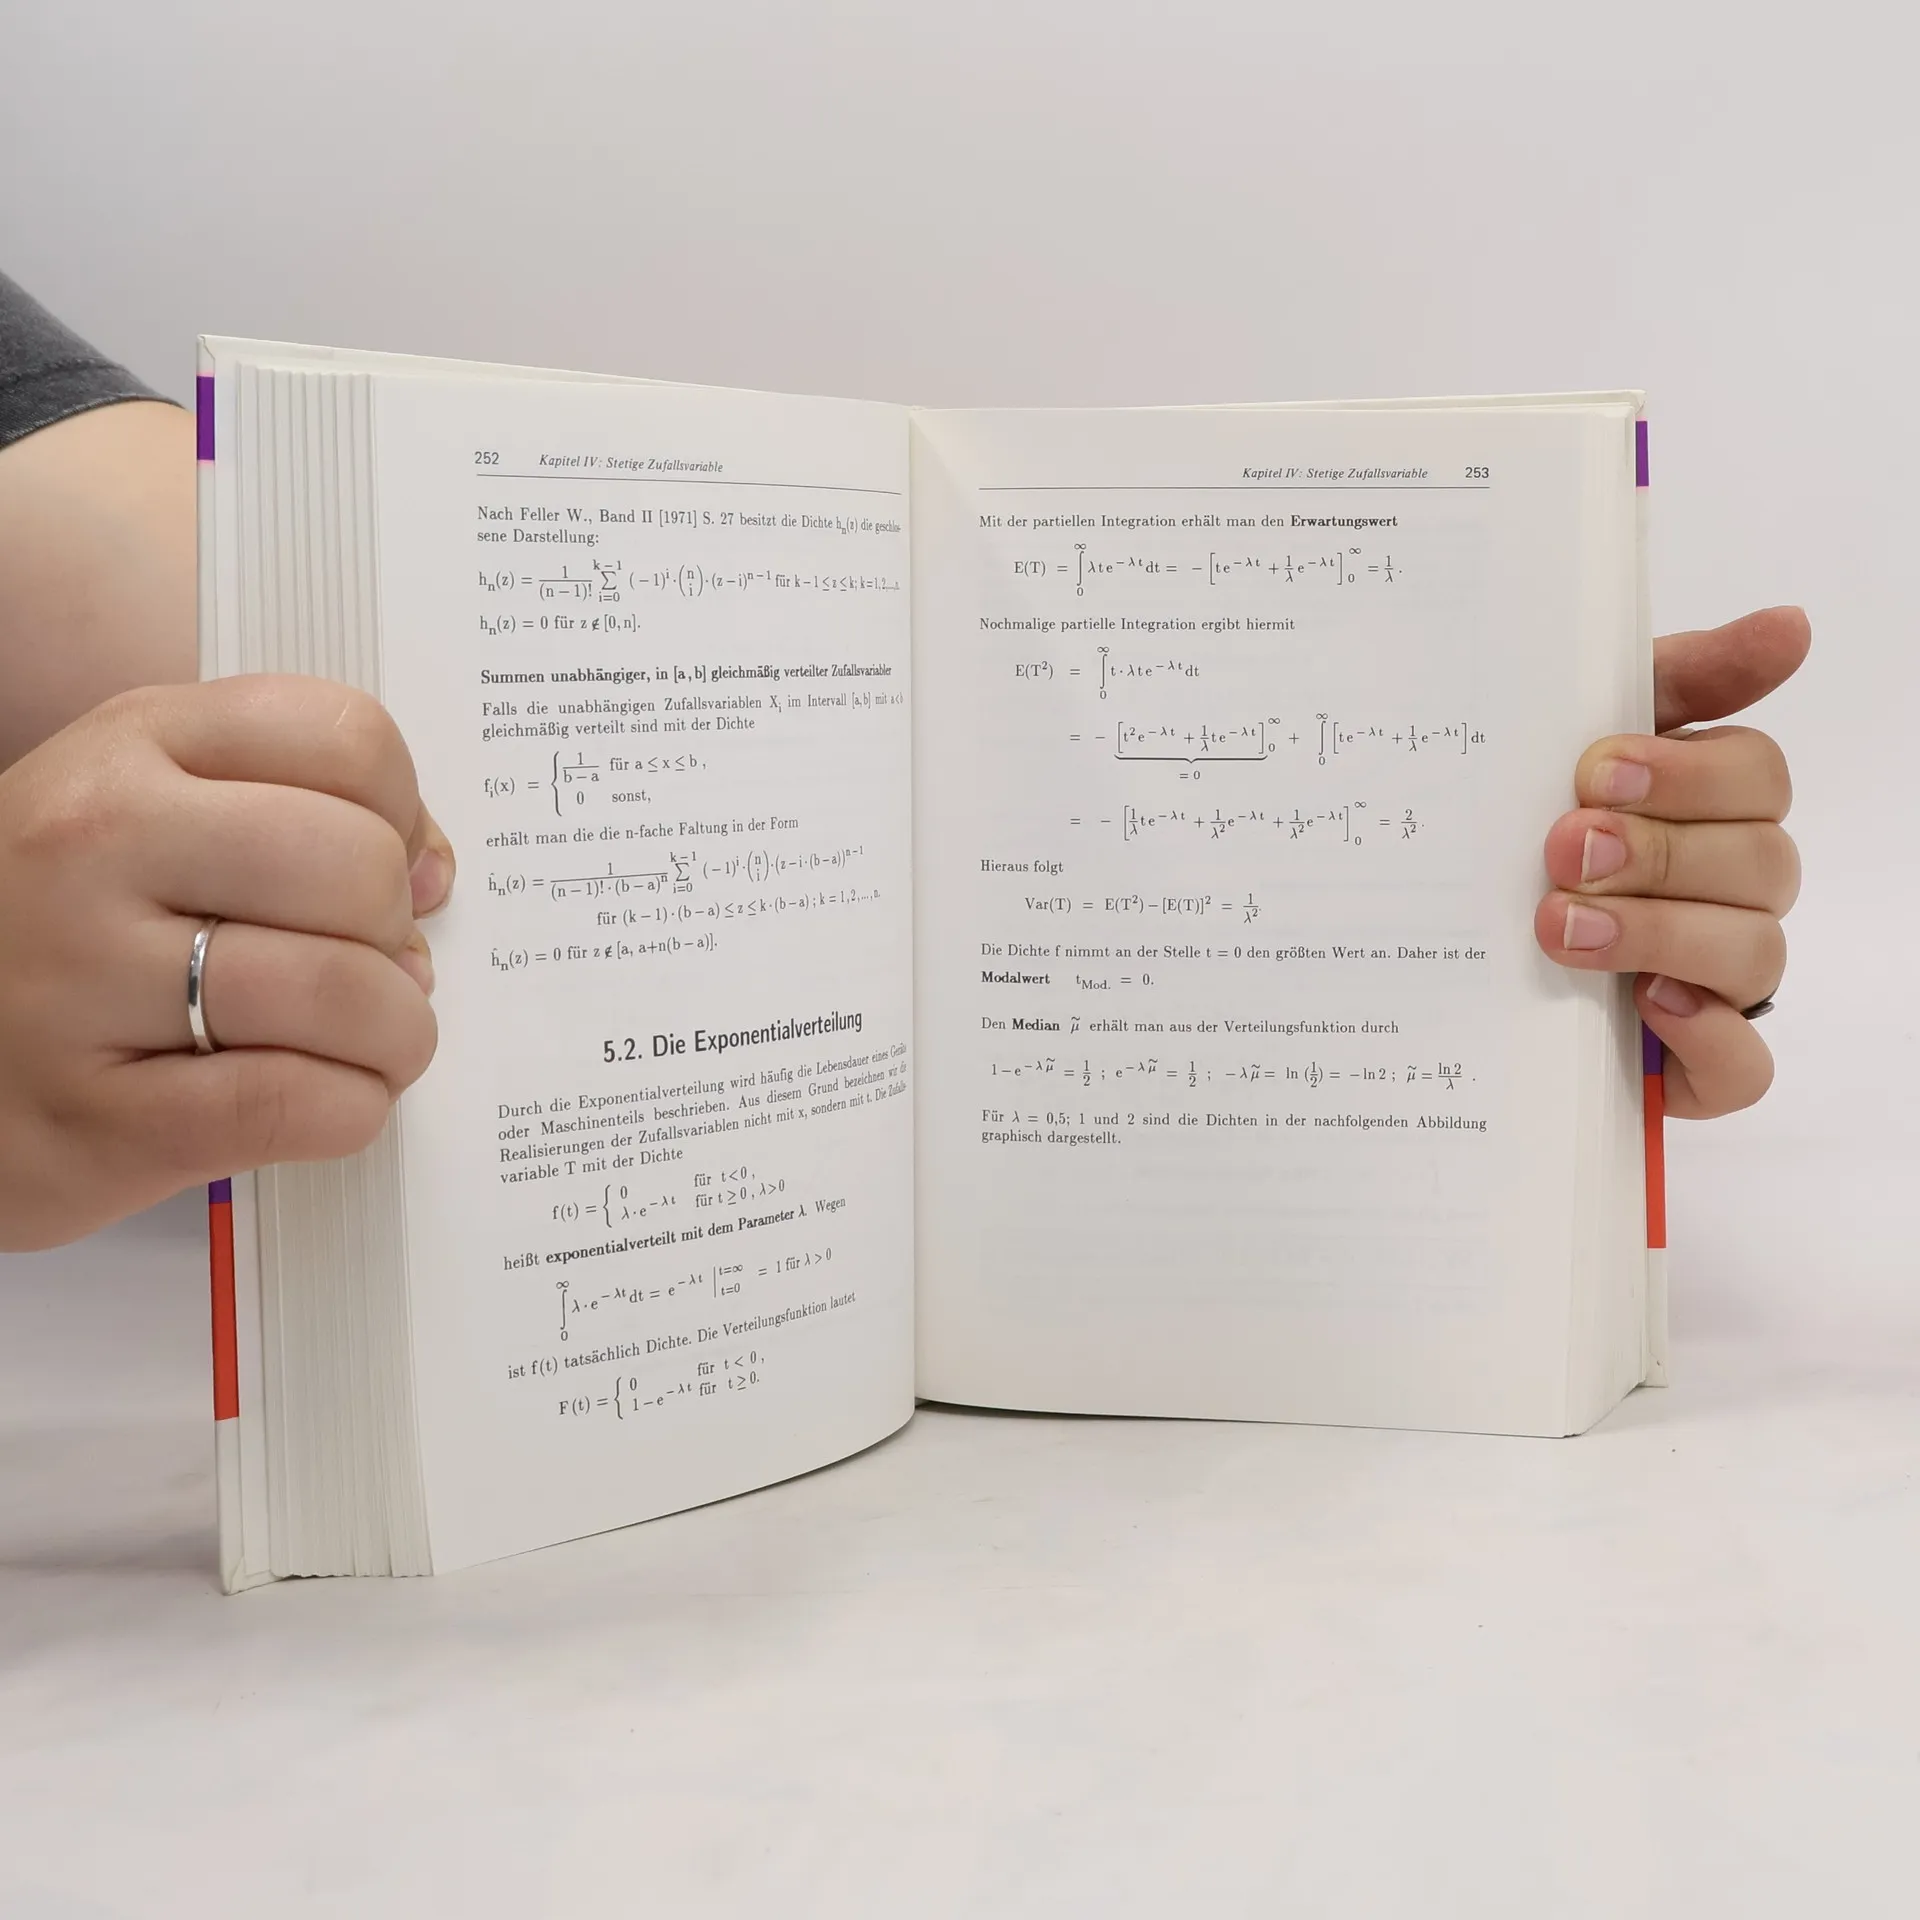 252 Kapitel IV: Stetige Zufallsvariable
Nach Feller W., Band II [1971] S. 27 besitzt die Dichte hₙ(z) die geschlos-
sene Darstellung:
hₙ(z) = 1/(n−1)! ∑_{i=0}^{k−1} (−1)^i · (n über i) · (z−i)^{n−1} für k−1 ≤ z ≤ k; k=1,2,...,n.
hₙ(z) = 0 für z ∉ [0,n].
Summen unabhängiger, in [a,b] gleichmäßig verteilter Zufallsvariabler
Falls die unabhängigen Zufallsvariablen Xᵢ im Intervall [a,b] mit a<b
gleichmäßig verteilt sind mit der Dichte
fᵢ(x) = { 1/(b−a) für a ≤ x ≤ b,
0 sonst,
erhält man die die n-fache Faltung in der Form
ĥₙ(z) = 1/((n−1)!·(b−a)ⁿ) ∑_{i=0}^{k−1} (−1)^i · (n über i) · (z−i·(b−a))^{n−1}
für (k−1)·(b−a) ≤ z ≤ k·(b−a); k = 1,2,...,n.
ĥₙ(z) = 0 für z ∉ [a, a+n(b−a)].
5.2. Die Exponentialverteilung
Durch die Exponentialverteilung wird häufig die Lebensdauer eines Geräts
oder Maschinenteils beschrieben. Aus diesem Grund bezeichnen wir die
Realisierungen der Zufallsvariablen nicht mit x, sondern mit t. Die Zufalls-
variable T mit der Dichte
f(t) = { 0 für t<0,
λ·e^{−λt} für t ≥ 0, λ>0
heißt exponentialverteilt mit dem Parameter λ. Wegen
∫₀^∞ λ·e^{−λt} dt = e^{−λt} |_{t=0}^{t=∞} = 1 für λ > 0
ist f(t) tatsächlich Dichte. Die Verteilungsfunktion lautet
F(t) = { 0 für t < 0,
1−e^{−λt} für t ≥ 0.
Kapitel IV: Stetige Zufallsvariable 253
Mit der partiellen Integration erhält man den Erwartungswert
E(T) = ∫₀^∞ λte^{−λt}dt = −[te^{−λt} + 1/λ e^{−λt}]₀^∞ = 1/λ.
Nochmalige partielle Integration ergibt hiermit
E(T²) = ∫₀^∞ t·λte^{−λt}dt
= −[t²e^{−λt} + 1/λ te^{−λt}]₀^∞ + ∫₀^∞ [te^{−λt} + 1/λ e^{−λt}] dt
= 0
= −[1/λ te^{−λt} + 1/λ² e^{−λt} + 1/λ² e^{−λt}]₀^∞ = 2/λ².
Hieraus folgt
Var(T) = E(T²) − [E(T)]² = 1/λ².
Die Dichte f nimmt an der Stelle t = 0 den größten Wert an. Daher ist der
Modalwert t_Mod. = 0.
Den Median μ̃ erhält man aus der Verteilungsfunktion durch
1−e^{−λμ̃} = 1/2 ; e^{−λμ̃} = 1/2 ; −λμ̃ = ln (1/2) = −ln 2 ; μ̃ = ln 2/λ .
Für λ = 0,5; 1 und 2 sind die Dichten in der nachfolgenden Abbildung
graphisch dargestellt.